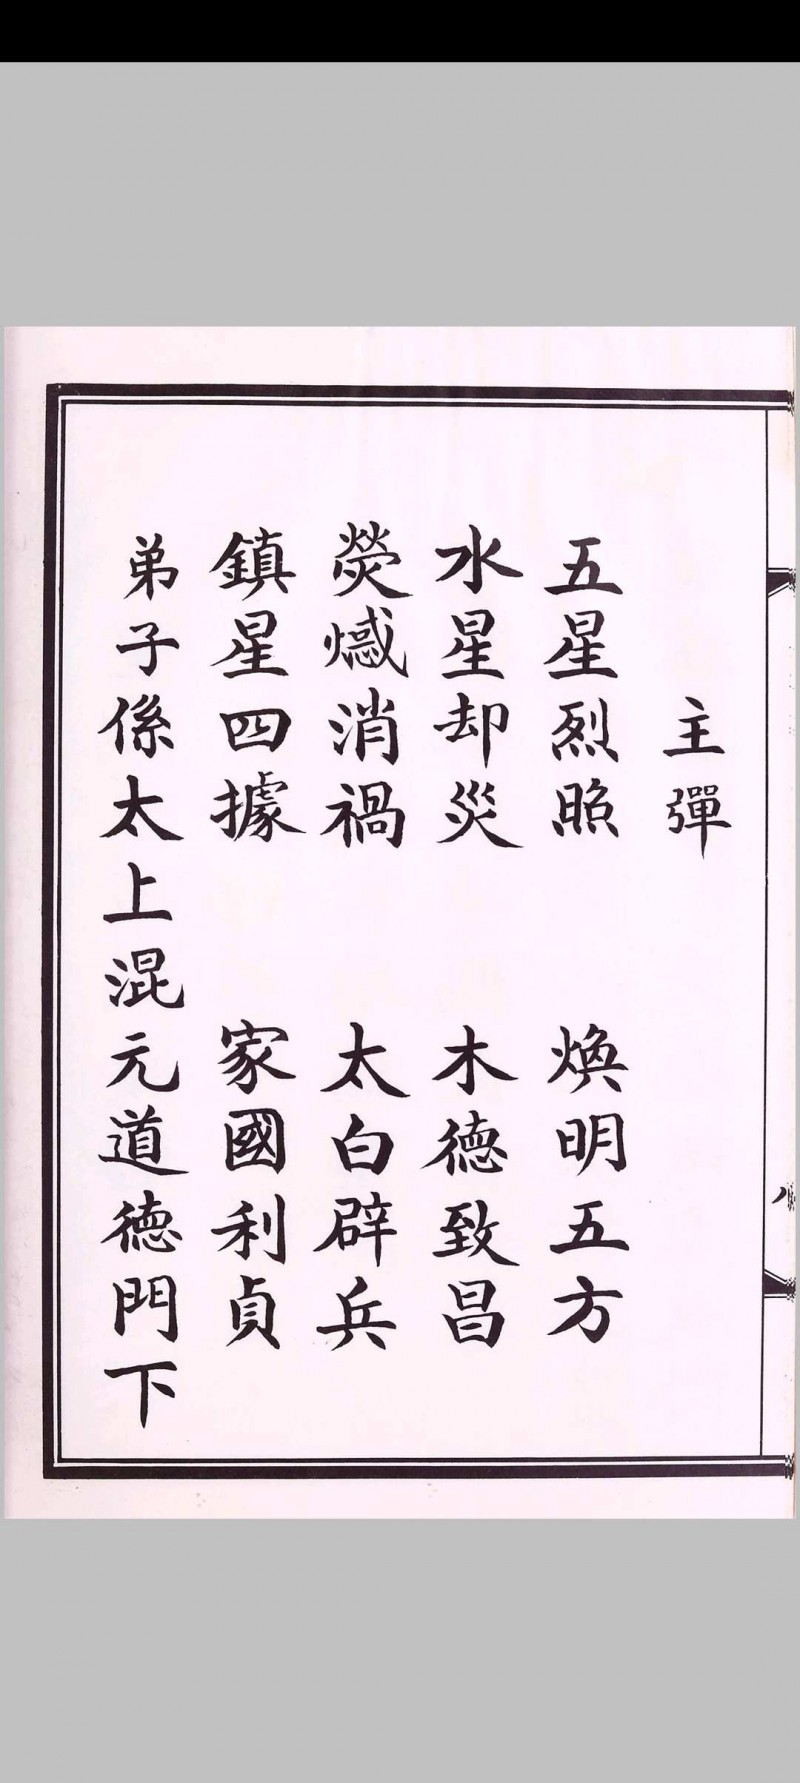 主彈
五星烈照　煥明五方
水星却災　木德致昌
熒惑消禍　太白辟兵
鎮星四據　家國利貞
弟子係太上混元道德門下